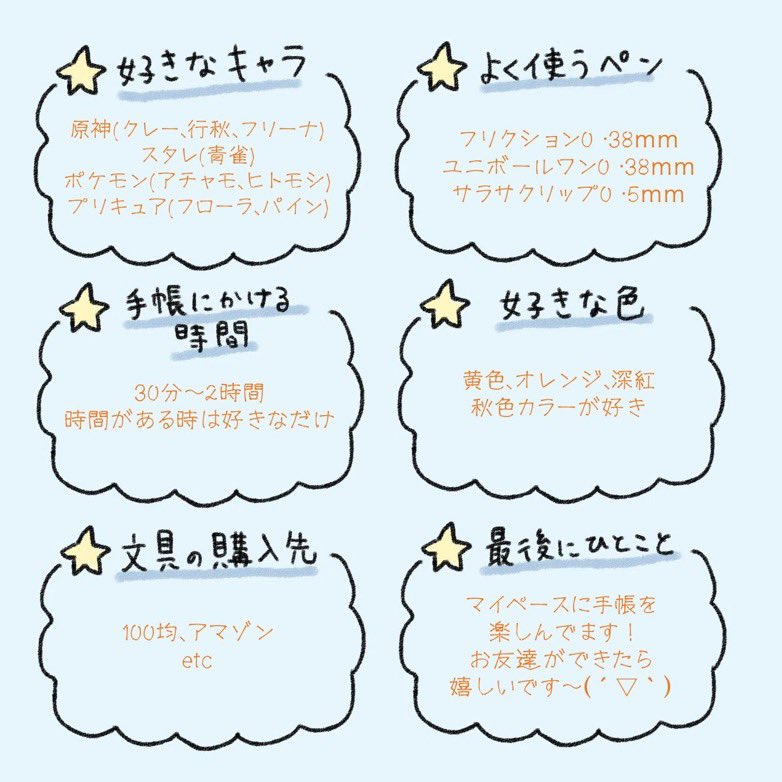 好きなキャラ
原神(クレー、行秋、フリーナ)
スタレ(青雀)
ポケモン(アチャモ、ヒトモシ)
プリキュア(フローラ、パイン)
よく使うペン
フリクション0.38mm
ユニボールワン0.38mm
サラサクリップ0.5mm
手帳にかける
時間
30分〜2時間
時間がある時は好きなだけ
好きな色
黄色、オレンジ、深紅
秋色カラーが好き
文具の購入先
100均、アマゾン
etc
最後にひとこと
マイペースに手帳を
楽しんでます!
お友達ができたら
嬉しいです〜(´▽`)